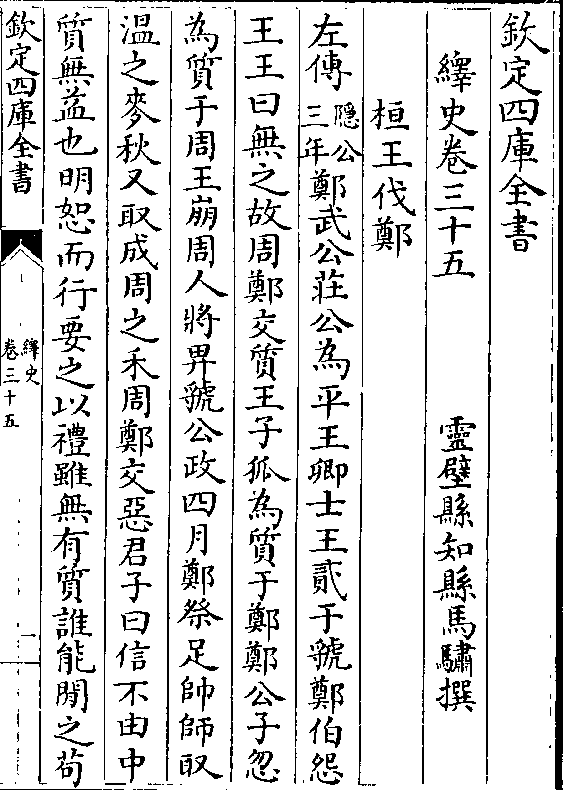 欽定四庫全書
繹史卷三十五
靈璧縣知縣馬驌撰
桓王伐鄭
左傳隠公三年鄭武公莊公為平王卿士王貳于虢鄭伯怨
王王曰無之故周鄭交質王子狐為質于鄭鄭公子忽
為質于周王崩周人將畀虢公政四月鄭祭足帥師取
溫之麥秋又取成周之禾周鄭交惡君子曰信不由中
質無益也明恕而行要之以禮雖無有質誰能閒之茍
欽定四庫全書
繹史
卷三十五
一